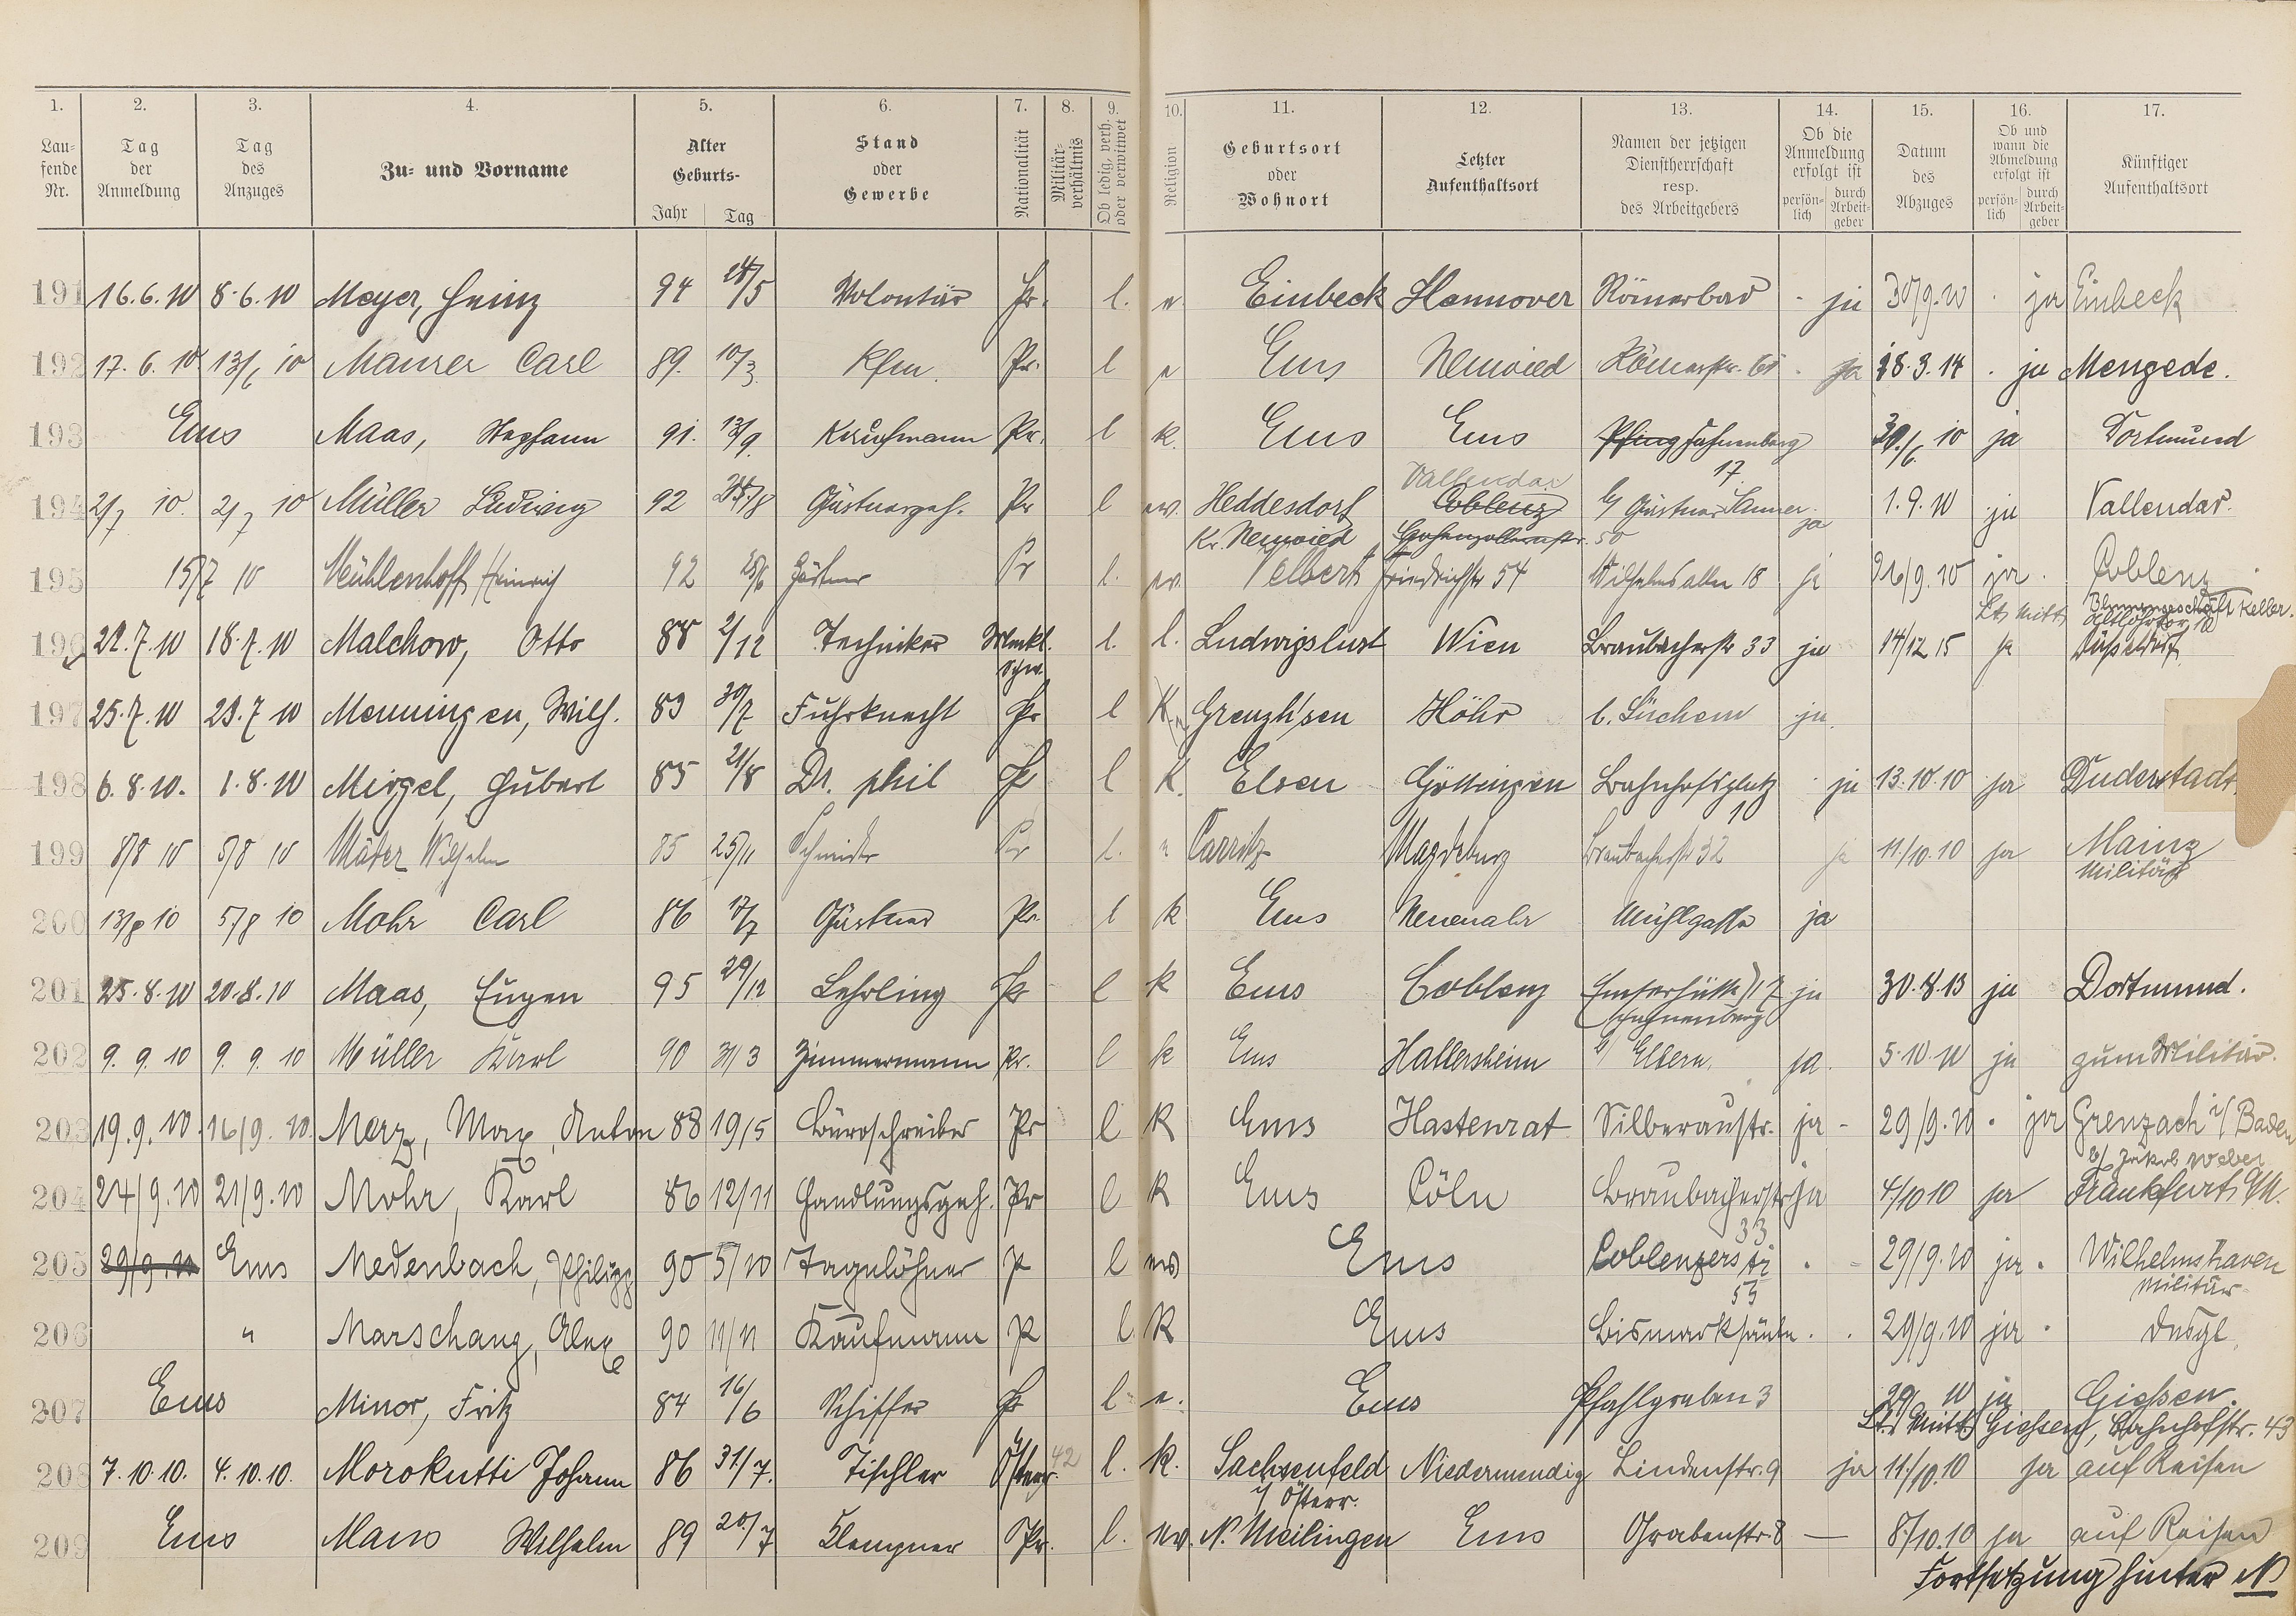 1. 2. 3. 4. 5. 6. 7. 8. 9. 10. 11. 12. 13. 14. 15. 16. 17.
Lau-
fende
Nr.
Tag
der
Anmeldung
Tag
des
Anzuges
Zu- und Vorname
Alter
Geburts-
Jahr Tag
Stand
oder
Gewerbe
Nationalität
Militär-
verhältnis
Ob ledig, verh.
oder verwitwet
Religion
Geburtsort
oder
Wohnort
Letzter
Aufenthaltsort
Namen der jetzigen
Dienstherrschaft
resp.
des Arbeitgebers
Ob die
Anmeldung
erfolgt ist
persön-
lich
durch
Arbeit-
geber
Datum
des
Abzuges
Ob und
wann die
Abmeldung
erfolgt ist
persön-
lich
durch
Arbeit-
geber
Künftiger
Aufenthaltsort
191 16.6.10 8.6.10 Meyer, Heinz 94 Volontär Pr. l. e Einbeck Hannover Römerbad - ja 30/9.10 . ja Einbeck
192 17.6.10. 13/6 10 Maurer Carl 89. 10/3 Kfm. Pr. l e Ems Neuwied Römerstr. - ja 18.3.14 . ja Mengede.
193 Ems Maas, Stephann 91. 13/9. Kaufmann Pr. l k. Ems Ems Pfing Hahnenberg 30./6. 10 ja Dortmund
17
Vallendar
194 2/7 10. 2/7 10 Müller Ludwig 92 Gärtnergeh. Pr l ev. Heddesdorf Coblenz b/ Gärtner ja 1.9.10 ja Vallendar.
Kr. Neuwied Hohenzollernstr. 50
195 15/7 10 Mühlenhoff Heinrich 92 Gärtner Pr l. ev. Velbert Friedrichstr 54 Wilhelmsallee 18 ja 26/9.10 ja . Coblenz
Lt. Mitt. Blumengeschäft Keller.
196 22.7.10 18.7.10 Malchow, Otto 88 2/12 Techniker Meckl. l. l. Ludwigslust Wien Braubacherstr 33 ja 14/12 15 ja Düsseldorf
Schw.
197 25.7.10 23.7 10 Menningen, Wilh. 89 30/7 Fuhrknecht Pr l K. Grenzh'sen Höhr b. Lüchem ja.
198 6.8.10. 1.8.10 Mirgel, Hubert 85 21/8 Dr. phil Pr l K. Elsen Göttingen Bahnhofsplatz . ja 13.10.10 ja Duderstadt.
10
199 8/8 10 5/8 10 Mäter Wilhelm 85 25/11 Schmidt Pr l. e Parritz Magdeburg Braubacherstr 32 ja 11./10.10 ja Mainz
Militär
200 13/8 10 5/8 10 Mohr Carl 86 17/7 Gärtner Pr. l k Ems Neuenahr Mühlgasse ja
201 25.8.10 20.8.10 Maas, Eugen 95 29/12 Lehrling Pr l k Ems Coblenz Emserhütte 17 ja 30.8.13 ja Dortmund.
Hahnenberg
202 9. 9. 10 9. 9. 10 Müller Karl 90 31/3 Zimmermann Pr. l k Ems Hattersheim b/ Eltern. ja. 5.10.10 ja zum Militär.
203 19.9.10. 16/9.10. Merz, Max, Anton 88 19/5 Büroschreiber Pr l K Ems Hastenrat Silberaustr. ja - 29/9.10 . ja Grenzach i/ Baden
b/ Jakob Weber
204 24/9.10 21/9.10 Mohr, Karl 86 12/11 Handlungsgeh. Pr l K Ems Cöln Braubacherstr ja 4/10 10 ja Frankfurt a/M.
33
205 29/9.10 Ems Medenbach, Philipp 90 5/10 Tagelöhner P l ev Ems Coblenzerstr . - 29/9.10 ja . Wilhelmshaven
55 Militär
206 " Marschang, Alex 90 11/11 Kaufmann P l K Ems Bismarksäule . . 29/9.10 ja . Desgl.
207 Ems Minor, Fritz 84 16/6 Schiffer Pr l e. Ems Pfahlgraben 3 10 ja Giessen.
Lt. Mitt. Giessen, Bahnhofstr. 43
208 7.10.10. 4.10.10. Morokutti Johann 86 31/7. Tischler Österr. 42 l. k. Sachsenfeld Niedermendig Lindenstr. 9 ja 11./10.10 ja auf Reisen
i/ Österr.
209 Ems Maus Wilhelm 89 20./7 Klempner Pr. l. ev. N. Meilingen Ems Grabenstr. 8 — 8./10.10 ja auf Reisen
Fortsetzung hinter N